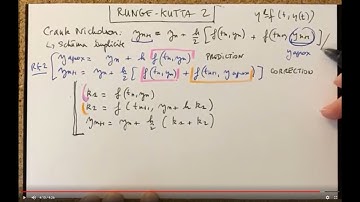 RUNGE-KUTTA 2
y' = f(t, y(t))
Crank Nicholson: yn+1 = yn + h/2 [f(tn, yn) + f(tn+1, yn+1)]
↳ schéma implicite
yapprox
RK2 yapprox = yn + h f(tn, yn) PREDICTION
yn+1 = yn + h/2 [f(tn, yn) + f(tn+1, yapprox)] CORRECTION
k1 = f(tn, yn)
k2 = f(tn+1, yn + h k1)
yn+1 = yn + h/2 (k1 + k2)